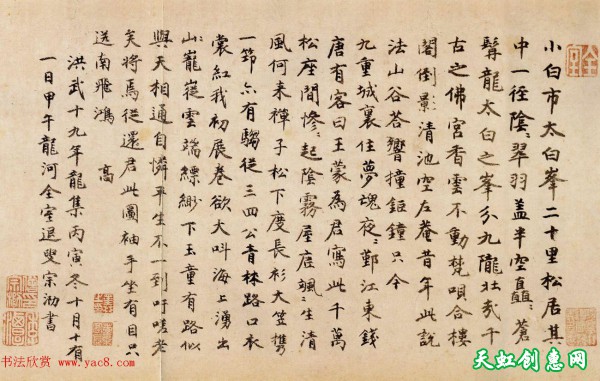 小白市太白峯二十里松居其
中一徑陰〻翠羽蓋半空矗〻蒼
髯龍太白之峯分九隴壯哉千
古之佛宮香雲不動梵唄合樓
閣倒影清池空左菴昔年此說
法山谷荅響撞鉅鐘只今
九重城裏住夢魂夜〻鄞江東錢
唐有客曰王蒙為君寫此千萬
松座間慘〻起陰霧屋底颯〻生清
風何來禪子松下度長衫大笠攜
一笻亦有騶從三四公青林路口衣
裳紅我初展卷欲大叫海上湧出
山巃嵸雲端縹緲下玉童有路似
與天相通自憐平生不一到吁嗟老
矣將焉從還君此圖袖手坐有目只
送南飛鴻
洪武十九年龍集丙寅冬十月十有
一日甲午龍河全室退叟宗泐書
书法欣赏
www.yac8.com
天虹创意网